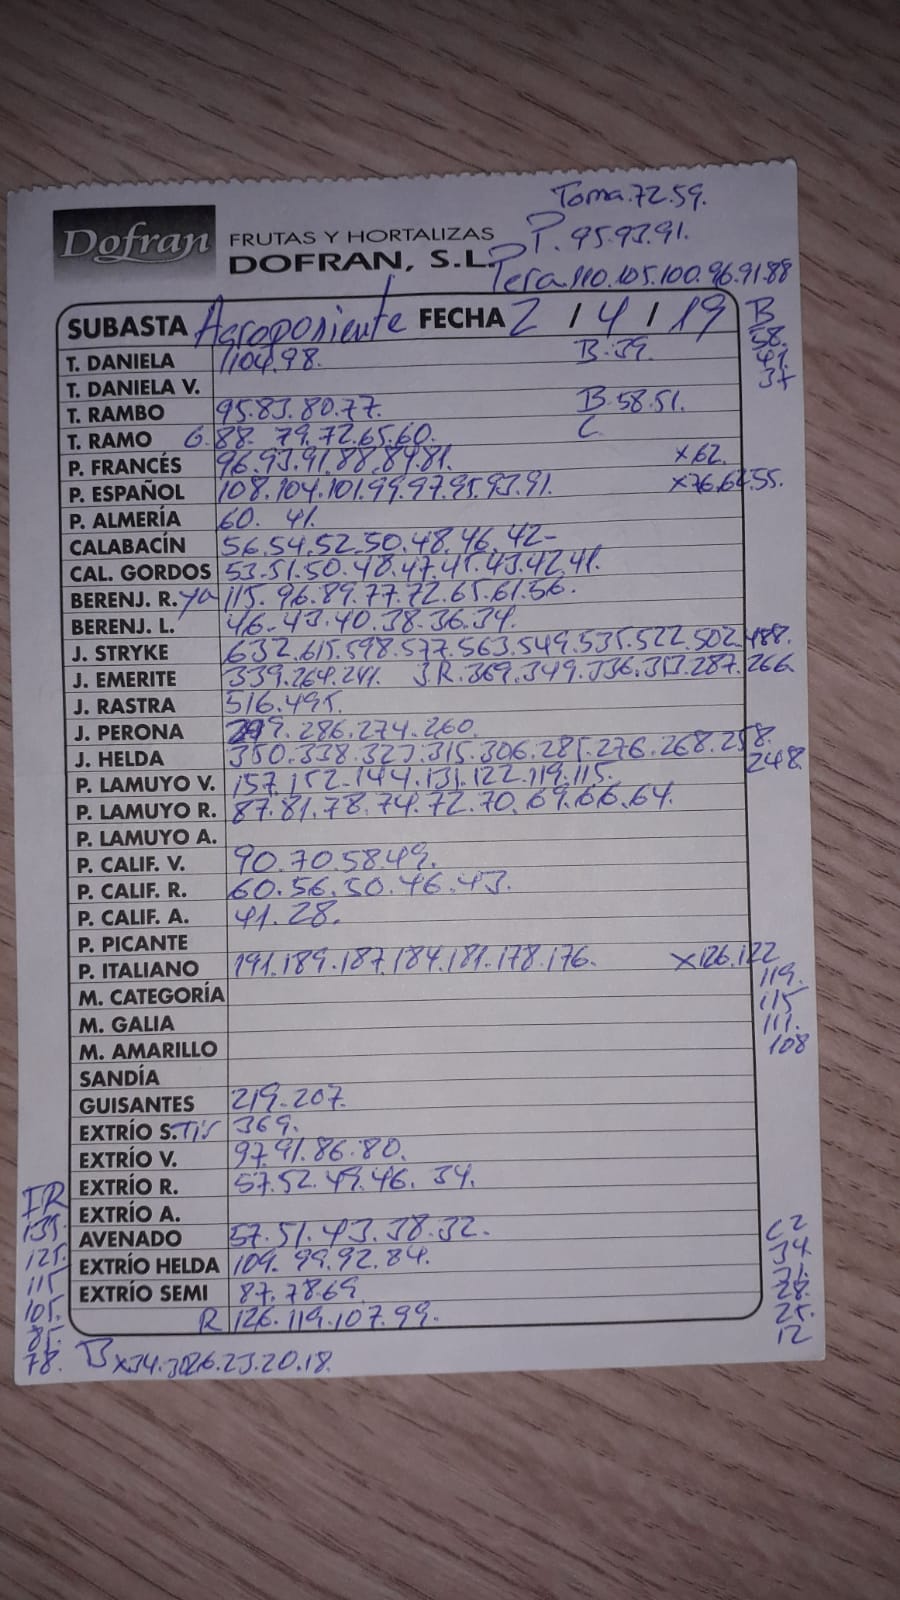 Toma.72.59.
Dofran FRUTAS Y HORTALIZAS P. 95.93.91.
DOFRAN, S.L. Pera.110.105.100.96.91.88
SUBASTA Agroponiente FECHA 2 / 4 / 19 B
58.
41.
37
T. DANIELA 104.98. B.39.
T. DANIELA V.
T. RAMBO 95.83.80.77. B.58.51.
T. RAMO G.88. 79.72.65.60. C
P. FRANCÉS 96.93.91.88.84.81. x62.
P. ESPAÑOL 108.104.101.99.97.95.93.91. x76.64.55.
P. ALMERÍA 60. 41.
CALABACÍN 56.54.52.50.48.46.42-
CAL. GORDOS 53.51.50.48.47.45.43.42.41.
BERENJ. R. ya 115.96.89.77.72.65.61.56.
BERENJ. L. 46.43.40.38.36.34.
J. STRYKE 632.615.598.577.563.549.535.522.502.488.
J. EMERITE 339.264.241. J.R.369.349.336.313.287.266
J. RASTRA 516.495.
J. PERONA 299.286.274.260.
J. HELDA 350.338.327.315.306.285.276.268.258.
248.
P. LAMUYO V. 157.152.144.131.122.119.115.
P. LAMUYO R. 87.81.78.74.72.70.69.66.64.
P. LAMUYO A.
P. CALIF. V. 90.70.58.49.
P. CALIF. R. 60.56.50.46.43.
P. CALIF. A. 41.28.
P. PICANTE
P. ITALIANO 191.189.187.184.181.178.176. x126.122
119.
115
111.
108
M. CATEGORÍA
M. GALIA
M. AMARILLO
SANDÍA
GUISANTES 219.207.
EXTRÍO S. 369.
EXTRÍO V. 97.91.86.80.
EXTRÍO R. 57.52.49.46. 34.
EXTRÍO A.
AVENADO 57.51.43.38.32.
EXTRÍO HELDA 109.99.92.84.
EXTRÍO SEMI 87.78.69.
R 126.119.107.99.
FR
135.
125.
115
105.
85.
78.
B x34.30.26.23.20.18.
C2
34
31.
28.
25.
12